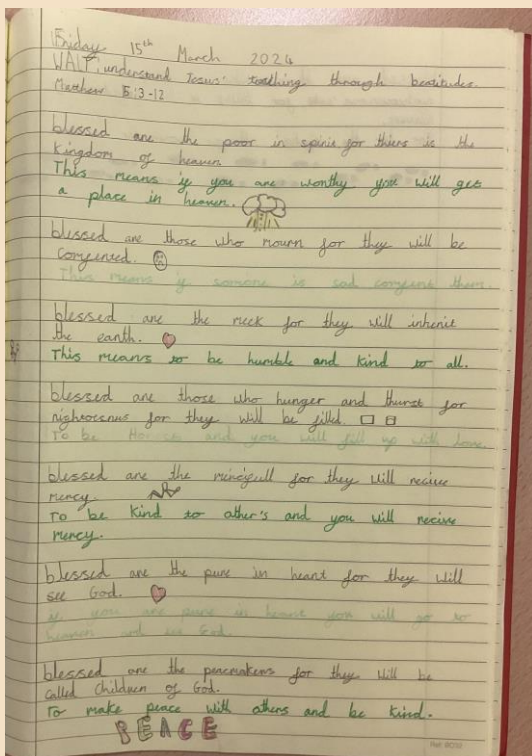 Friday 15th March 2024
WALT: understand Jesus' teaching through beatitudes.
Matthew 5:3-12
blessed are the poor in spirit for thiers is the
Kingdom of heaven
This means if you are worthy you will get
a place in heaven.
blessed are those who mourn for they will be
Comforted.
This means if someone is sad comfort them.
blessed are the meek for they will inherit
the earth.
This means to be humble and kind to all.
blessed are those who hunger and thurst for
for they will be filled.
To be and you will fill up with love.
blessed are the for they will recive
mercy.
To be kind to other's and you will recive
mercy.
blessed are the pure in heart for they will
see God.
if you are pure in heart you will go to
heaven and see God.
blessed are the peacmakers for they will be
called Children of God.
To make peace with others and be kind.
PEACE